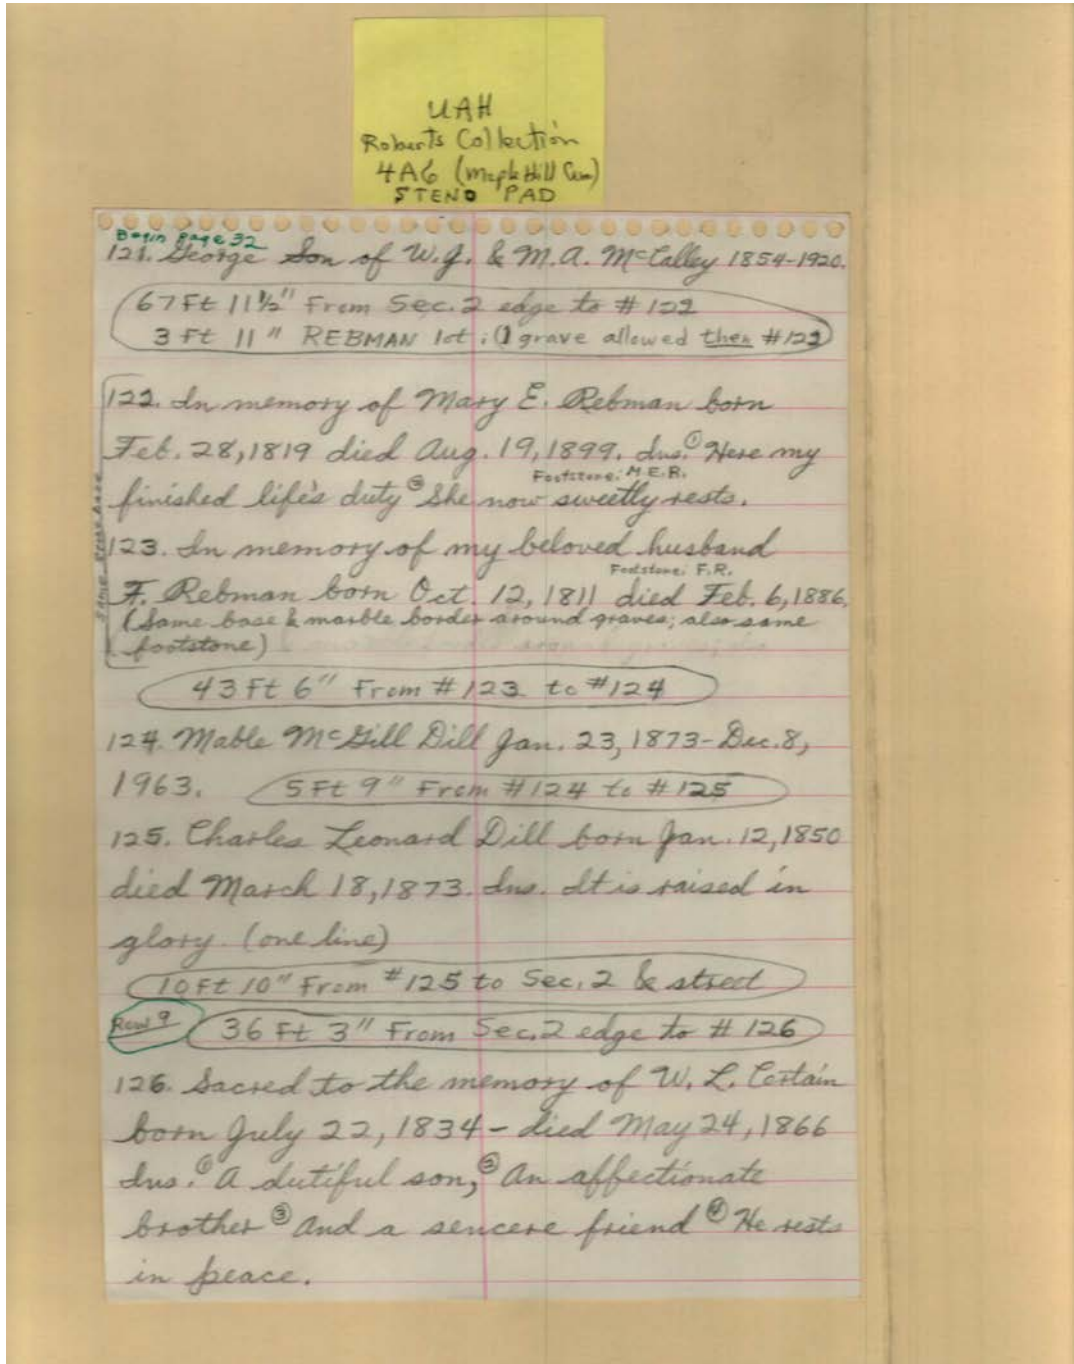 UAH
Roberts Collection
4A6 (Maple Hill Cem)
STENO PAD
Begin page 32
121. George Son of W.J. & M.A. McCalley 1854-1920.
67 Ft 11½" From Sec. 2 edge to # 122
3 Ft 11" REBMAN lot; (1 grave allowed then #122
122. In memory of Mary E. Rebman born
Feb. 28, 1819 died Aug. 19, 1899. Ins. ① Here my
Footstone: M.E.R.
finished life's duty ② She now sweetly rests.
same stone base
123. In memory of my beloved husband
Footstone: F.R.
F. Rebman born Oct. 12, 1811 died Feb. 6, 1886.
(Same base & marble border around graves; also same
footstone)
43 Ft 6" From # 123 to #124
124. Mable McGill Dill Jan. 23, 1873 - Dec. 8,
1963. 5 Ft 9" From #124 to #125
125. Charles Leonard Dill born Jan. 12, 1850
died March 18, 1873. Ins. It is raised in
glory. (one line)
10 Ft 10" From #125 to Sec. 2 & street
Row 9 36 Ft 3" From Sec. 2 edge to # 126
126. Sacred to the memory of W. L. Certain
born July 22, 1834 - died May 24, 1866
Ins. ① A dutiful son, ② An affectionate
brother ③ And a sencere friend ④ He rests
in peace.